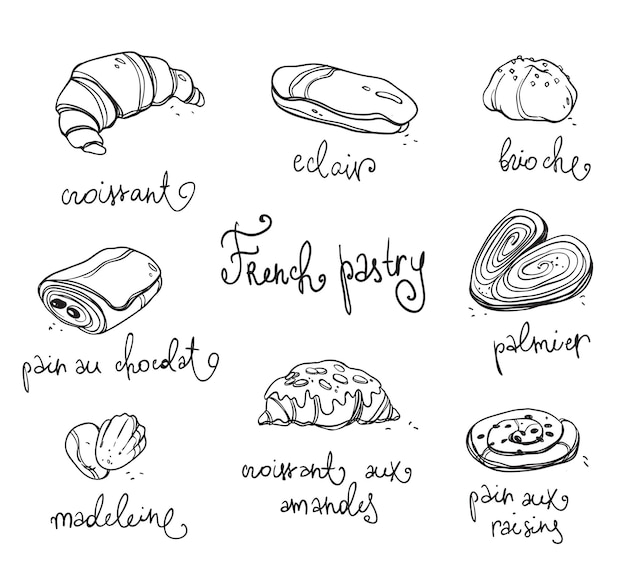 croissant
eclair
brioche
French pastry
pain au chocolat
palmier
madeleine
croissant aux
amandes
pain aux
raisins